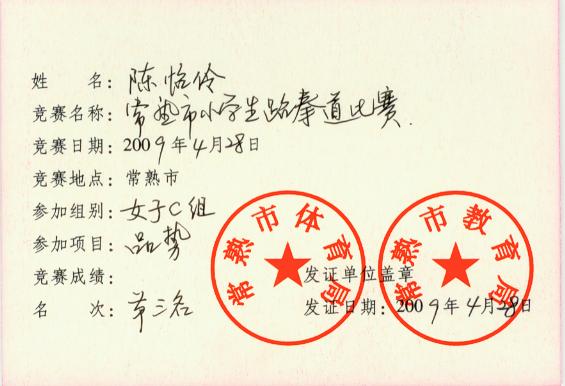 姓 名：陈恪伶
竞赛名称：常熟市小学生跆拳道比赛.
竞赛日期：2009年4月28日
竞赛地点：常熟市
参加组别：女子C组
参加项目：品势
竞赛成绩：
名 次：第三名
常熟市体育局
常熟市教育局
发证单位盖章
发证日期：2009年4月28日